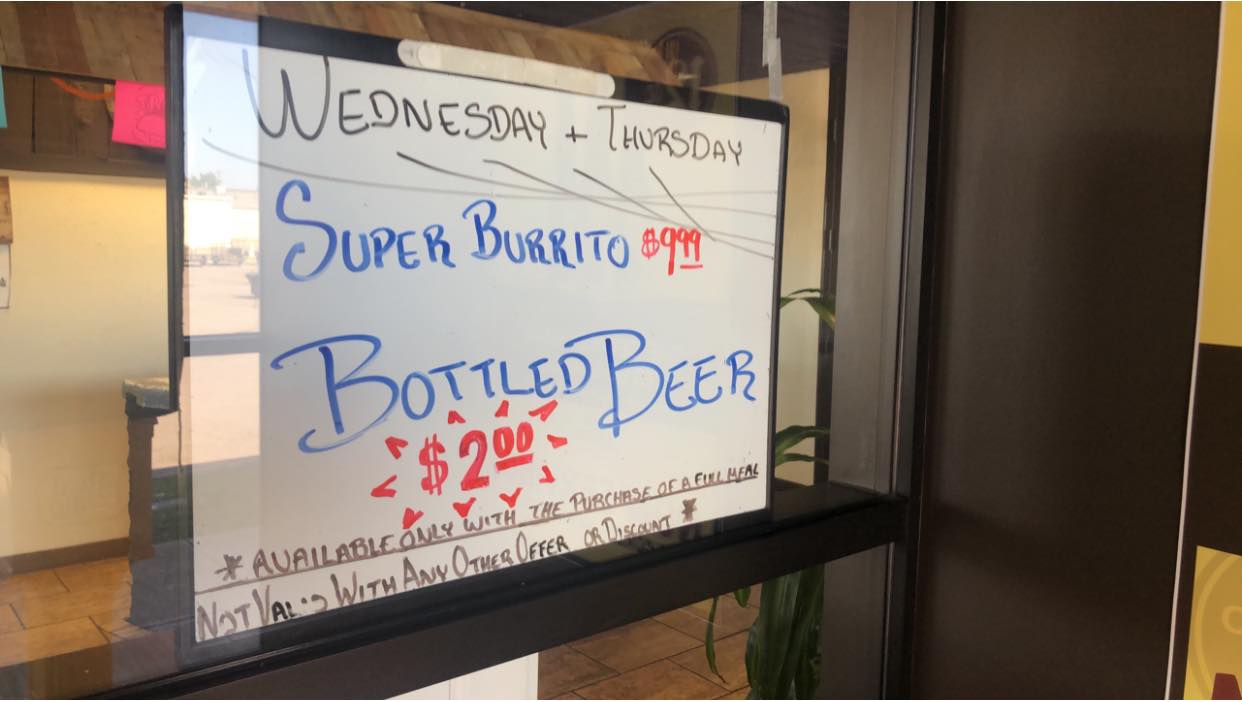 WEDNESDAY + THURSDAY
SUPER BURRITO $9.99
BOTTLED BEER
$2.00
* AVAILABLE ONLY WITH THE PURCHASE OF A FULL MEAL
NOT VALID WITH ANY OTHER OFFER OR DISCOUNT *